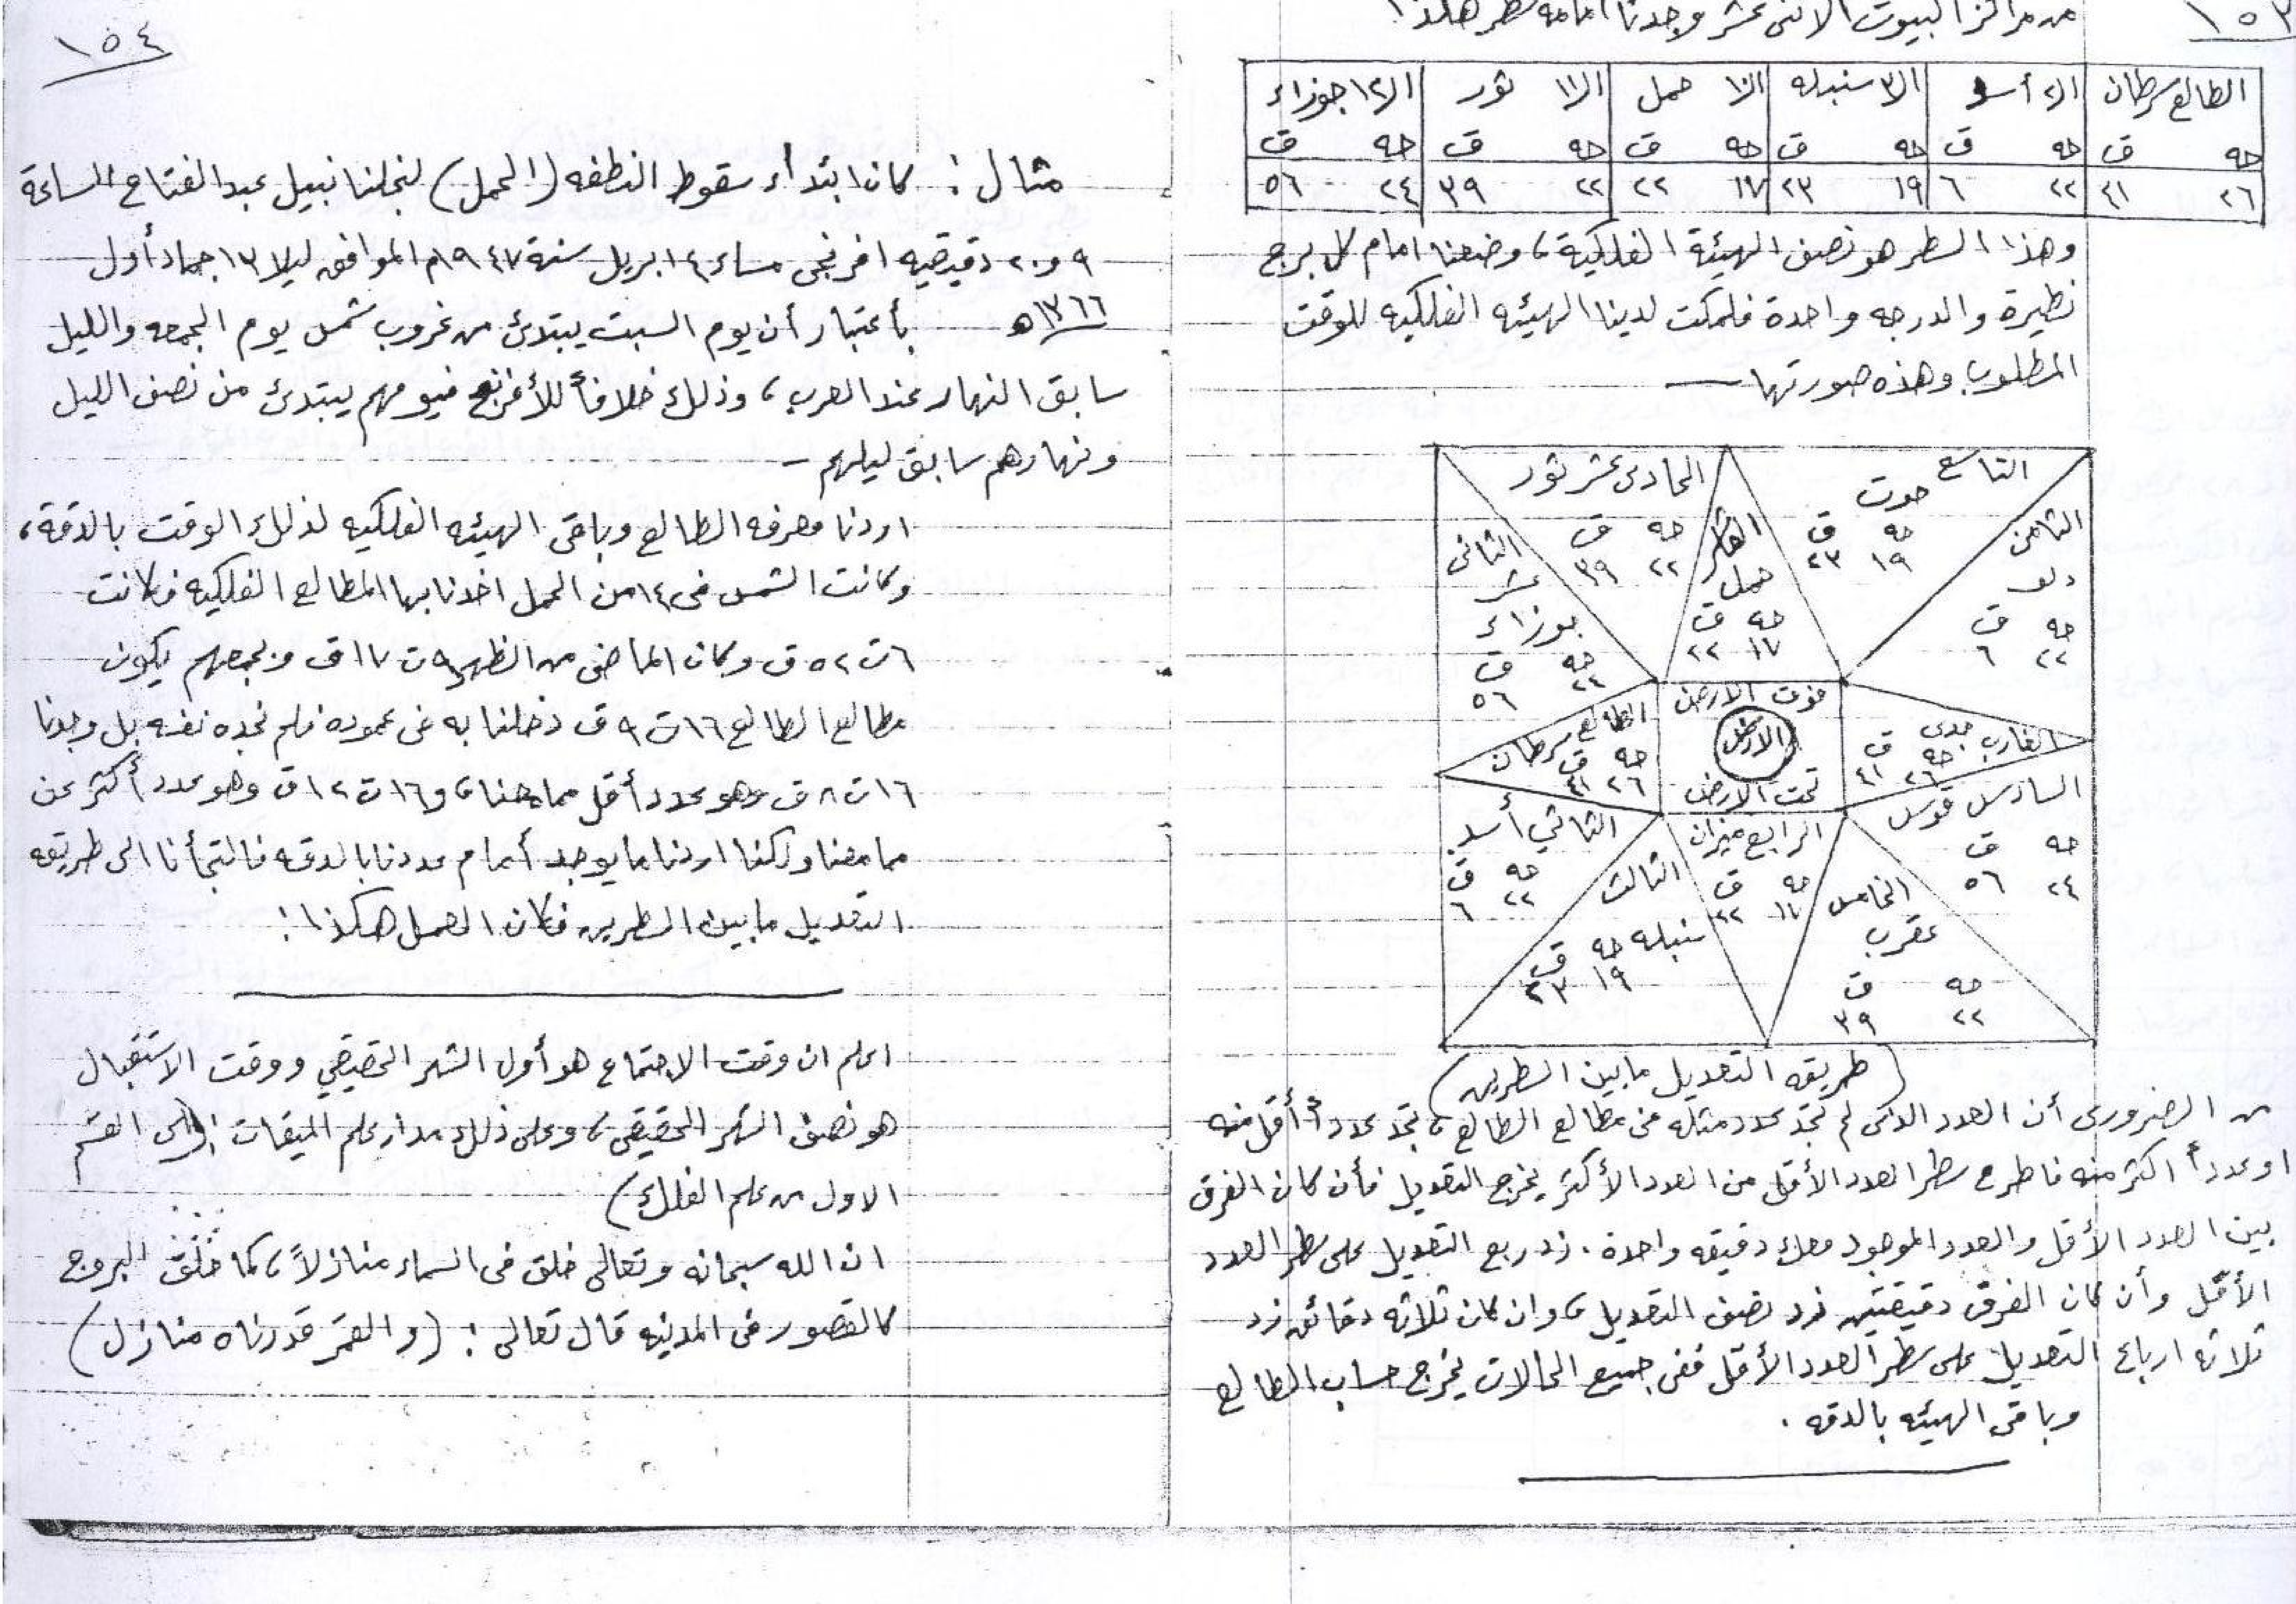 ١٥٣
من مراكز البيوت الاثنى عشر وجدنا امامه سطر هكذا
الطالع سرطان | الـ٢ أسد | الـ٣ سنبله | الـ١٠ حمل | الـ١١ ثور | الـ١٢ جوزاء
حه ق | حه ق | حه ق | حه ق | حه ق | حه ق
٢٦ ٤١ | ٢٢ ٦ | ١٩ ٢٣ | ١٧ ٢٢ | ٢٢ ٣٩ | ٢٤ ٥٦
وهذا السطر هو نصف الهيئة الفلكية، وضعنا امام كل برج
نظيرة والدرجه واحدة فلمكت لدينا الهيئه الفلكيه للوقت
المطلوب وهذه صورتها —
التاسع حوت
حه ق
١٩ ٢٣
الثامن
دلو
حه ق
٢٢ ٦
الحادى عشر ثور
حه ق
٢٢ ٣٩
العاشر
حمل
حه ق
١٧ ٢٢
الثانى
عشر
جوزاء
حه ق
٢٤ ٥٦
الطالع سرطان
حه ق
٢٦ ٤١
فوق الارض
الارض
تحت الارض
الغارب جدى
حه ق
٢٦ ٤١
السادس قوس
حه ق
٢٤ ٥٦
الثاني أسد
حه ق
٢٢ ٦
الرابع ميزان
حه ق
١٧ ٢٢
الثالث
سنبله
حه ق
١٩ ٢٣
الخامس
عقرب
حه ق
٢٢ ٣٩
(طريقه التعديل مابين السطرين)
من الضرورى أن العدد الذى لم تجد عدد مثله فى مطالع الطالع، تجد عدداً أقل منه
او عدداً اكثر منه فاطرح سطر العدد الأقل من العدد الأكثر يخرج التعديل فأن كان الفرق
بين العدد الأقل والعدد الموجود معك دقيقه واحدة. زد ربع التعديل على سطر العدد
الأقل وأن كان الفرق دقيقتين زد نصف التعديل، وان كان ثلاثه دقائق زد
ثلاثه ارباع التعديل على سطر العدد الأقل ففى جميع الحالات يخرج حساب الطالع
وباقى الهيئه بالدقه.
١٥٤
مثال: كان ابتداء سقوط النطفه (الحمل) لنجلنا نبيل عبد الفتاح الساعة
٩ و٢٠ دقيقيه افرنجى مساء ٤ ابريل سنة ١٩٤٧م الموافق ليلا ١٣ جماد أول
١٣٦٦هـ بأعتبار أن يوم السبت يبتدئ من غروب شمس يوم الجمعه والليل
سابق النهار عند العرب، وذلك خلافاً للأفرنج فيومهم يبتدئ من نصف الليل
ونهارهم سابق ليلهم —
اردنا معرفه الطالع وباقى الهيئه الفلكيه لذلك الوقت بالدقة،
وكانت الشمس فى ١٤ من الحمل اخذنا بها المطالع الفلكيه فكانت
٦ت ٥٢ ق وكان الماضى من الظهر ٩ت ١٧ ق وبجمعهم يكون
مطالع الطالع ١٦ت ٩ ق دخلنا به فى عموده فلم نجده نفسه بل وجدنا
١٦ت ٨ ق وهو عدد أقل مما معنا، و١٦ت ١٢ ق وهو عدد أكثر عن
مما معنا ولكنا اردنا ما يوجد أمام عددنا بالدقه فالتجأنا الى طريقه
التعديل مابين السطرين فكان العمل هكذا:
اعلم ان وقت الاجتماع هو أول الشهر الحقيقي ووقت الاستقبال
هو نصف الشهر الحقيقى، وعلى ذلك مدار علم الميقات القسم
الاول من علم الفلك)
ان الله سبحانه وتعالى خلق فى السماء منازلاً، كما خلق البروج
كالقصور فى المدينه قال تعالى: (والقمر قدرناه منازل)